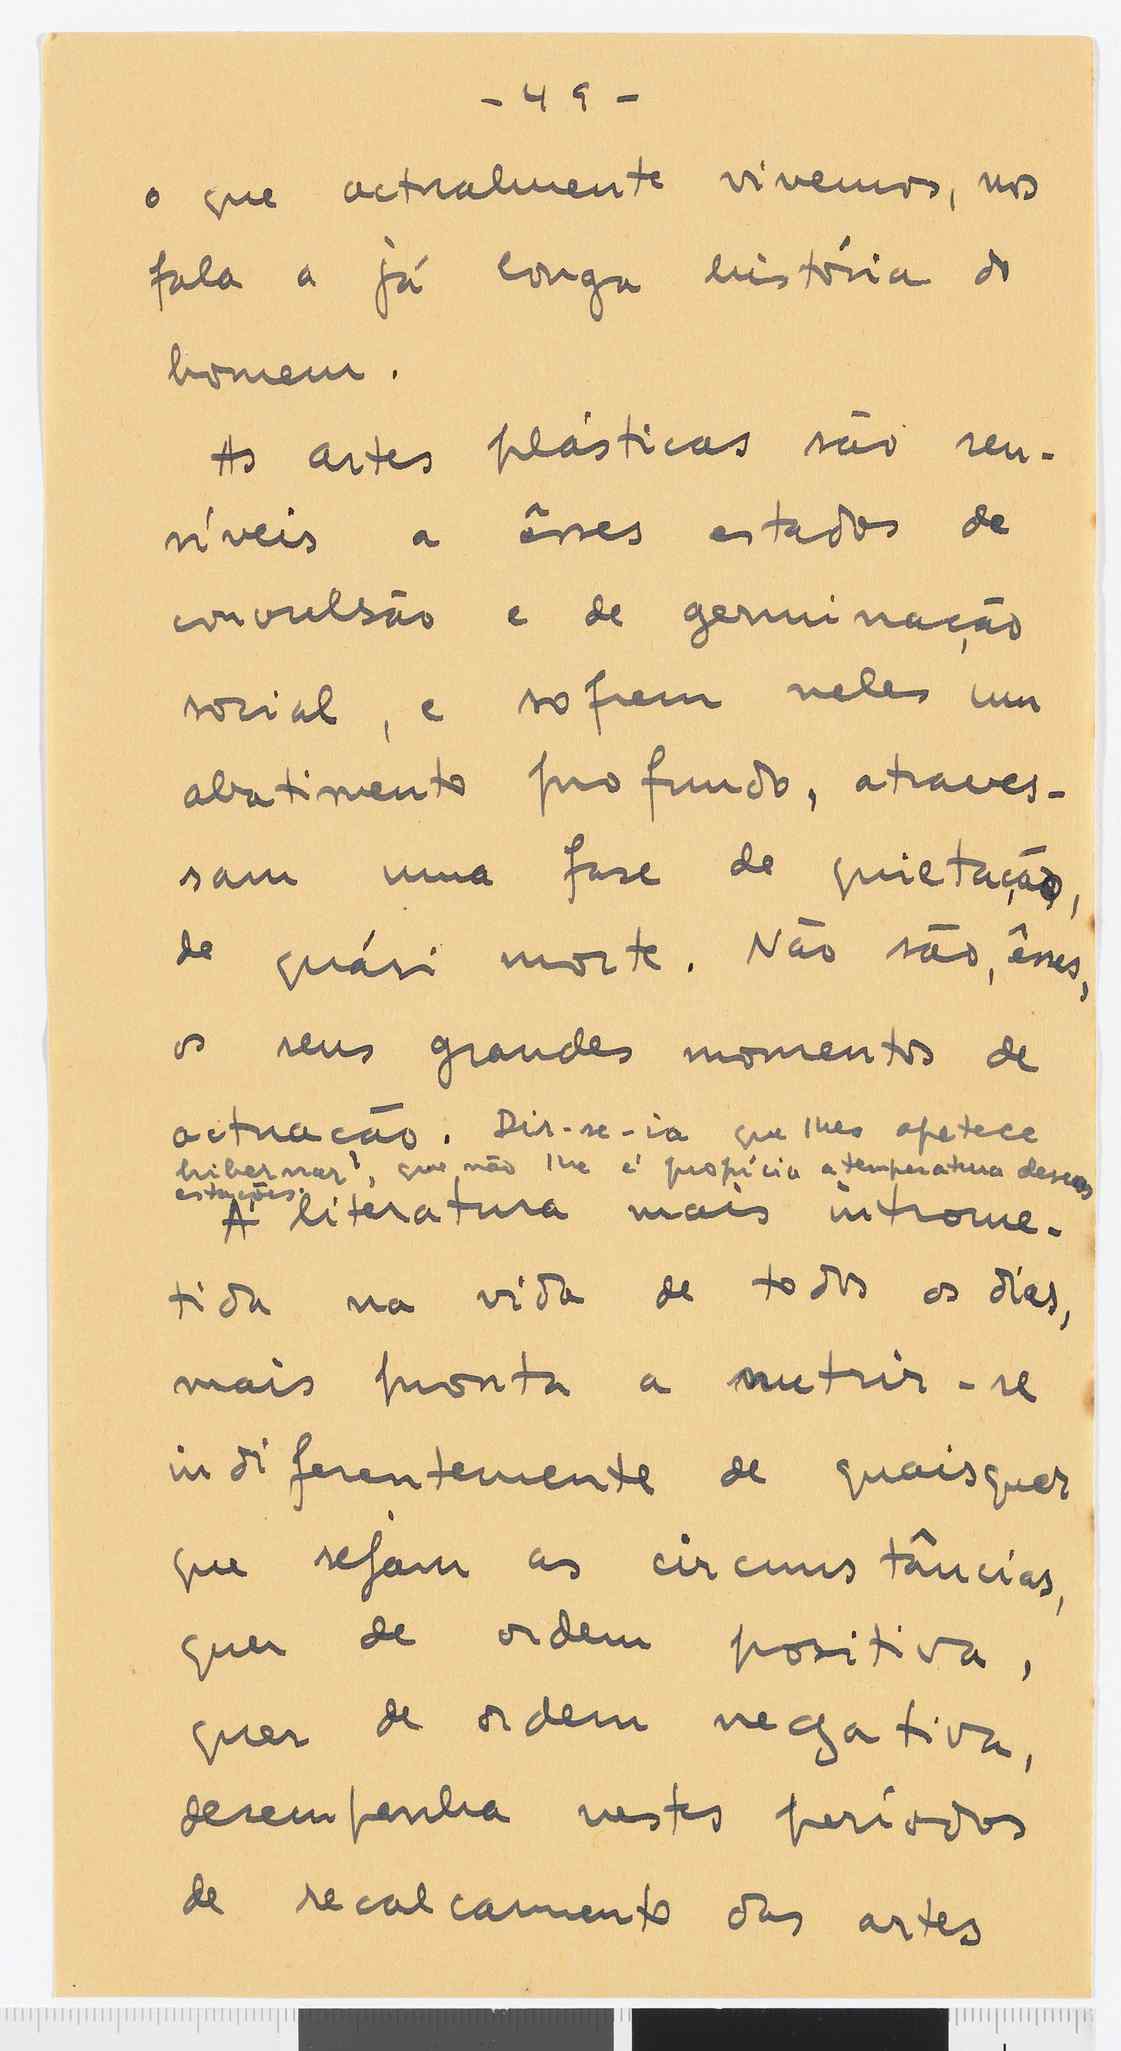 - 49 -
o que actualmente vivemos, nos
fala a já longa história do
homem.
As artes plásticas são sen-
síveis a êsses estados de
convulsão e de germinação
social, e sofrem neles um
abatimento profundo, atraves-
sam uma fase de quietação,
de quási morte. Não são, êsses,
os seus grandes momentos de
actuação. Dir-se-ia que lhes apetece
hibernar, que não lhe é propícia a temperatura dessas
estações.
A literatura mais introme-
tida na vida de todos os dias,
mais pronta a nutrir-se
indiferentemente de quaisquer
que sejam as circunstâncias,
quer de ordem positiva,
quer de ordem negativa,
desempenha nestes períodos
de recalcamento das artes